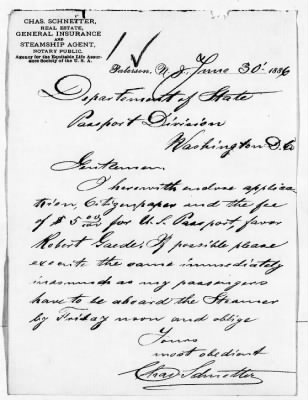 CHAS. SCHNETTER,
REAL ESTATE,
GENERAL INSURANCE
AND
STEAMSHIP AGENT,
NOTARY PUBLIC.
Agency for the Equitable Life Assur-
ance Society of the U. S. A.
Paterson, N. J. June 30' 1886
Departement of State
Passport Division
Washington D. C.
Gentlemen
I herewith enclose applica
tion, Citizenpaper and the fee
of $5 00/100 for U.S. Passport, favor
Robert If possible please
execute the same immediately
inasmuch as my passengers
have to be aboard the Steamer
by Friday noon and oblige
Yours
most obedient
Chas Schnetter